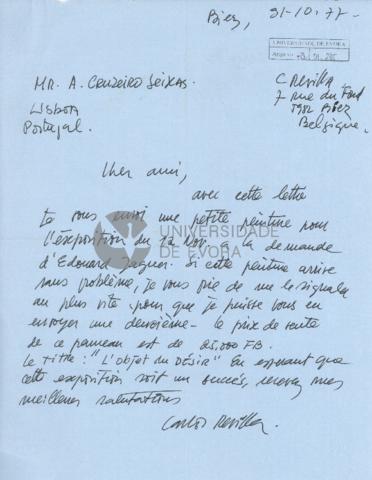 Biez, 31-10-77-
UNIVERSIDADE DE ÉVORA
MR. A. CRUZEIRO SEIXAS
LISBOA
Portugal.
C Revilla
7 rue du Fond
5982 Biez
Belgique.
Cher ami,
avec cette lettre
je vous envoi une petite peinture pour
l'exposition du 12 Nov. a la demande
d'Edouard Jaguer. Si cette peinture arrive
sans problème, je vous prie de me le signaler
au plus vite pour que je puisse vous en
envoyer une deuxième - le prix de vente
de ce panneau est de 25,000 FB.
Le titre: "L'OBJET du DÉSIR" En esperant que
cette exposition soit un succès, recevez mes
meilleures salutations
Carlos Revilla.
UNIVERSIDADE
DE ÉVORA